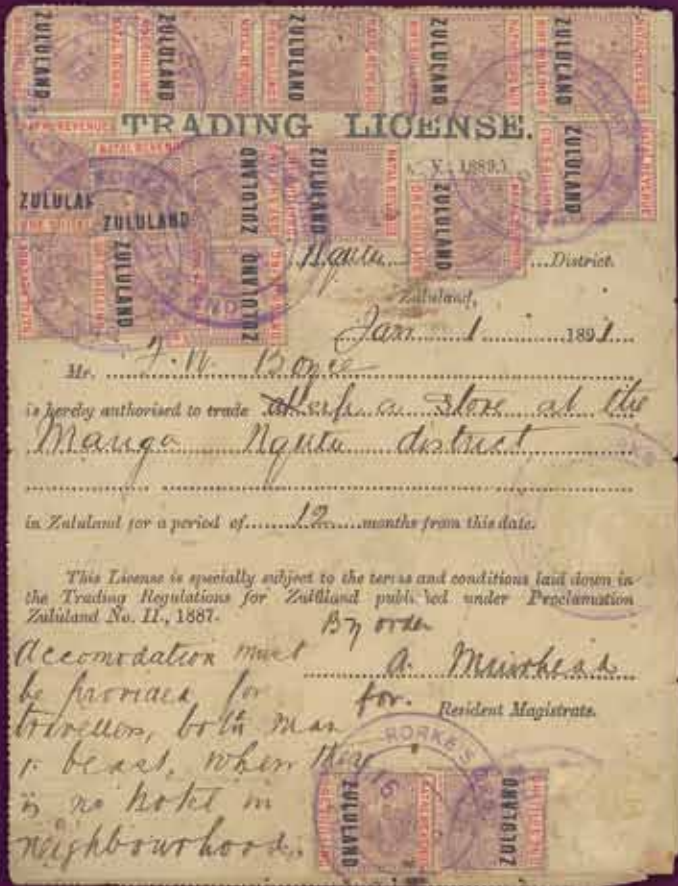 ZULULAND ZULULAND ZULULAND ZULULAND ZULULAND
NATAL REVENUE
TRADING LICENSE.
ZULULAND ZULULAND ZULULAND ZULULAND
NATAL REVENUE
ZULULAND
ZULULAND
ZULULAND ZULULAND
Nqutu District.
Zululand,
Jan 1 1891
Mr. F. W. Boyce
is hereby authorised to trade at a store at the
Manga Nqutu district
in Zululand for a period of 12 months from this date.
This License is specially subject to the terms and conditions laid down in
the Trading Regulations for Zululand published under Proclamation
Zululand No. II., 1887.
By order
A. Muirhead
for. Resident Magistrate.
Accomodation must
be provided for
travellers, both man
& beast, when there
is no hotel in
neighbourhood.
RORKE'S
ZULULAND ZULULAND